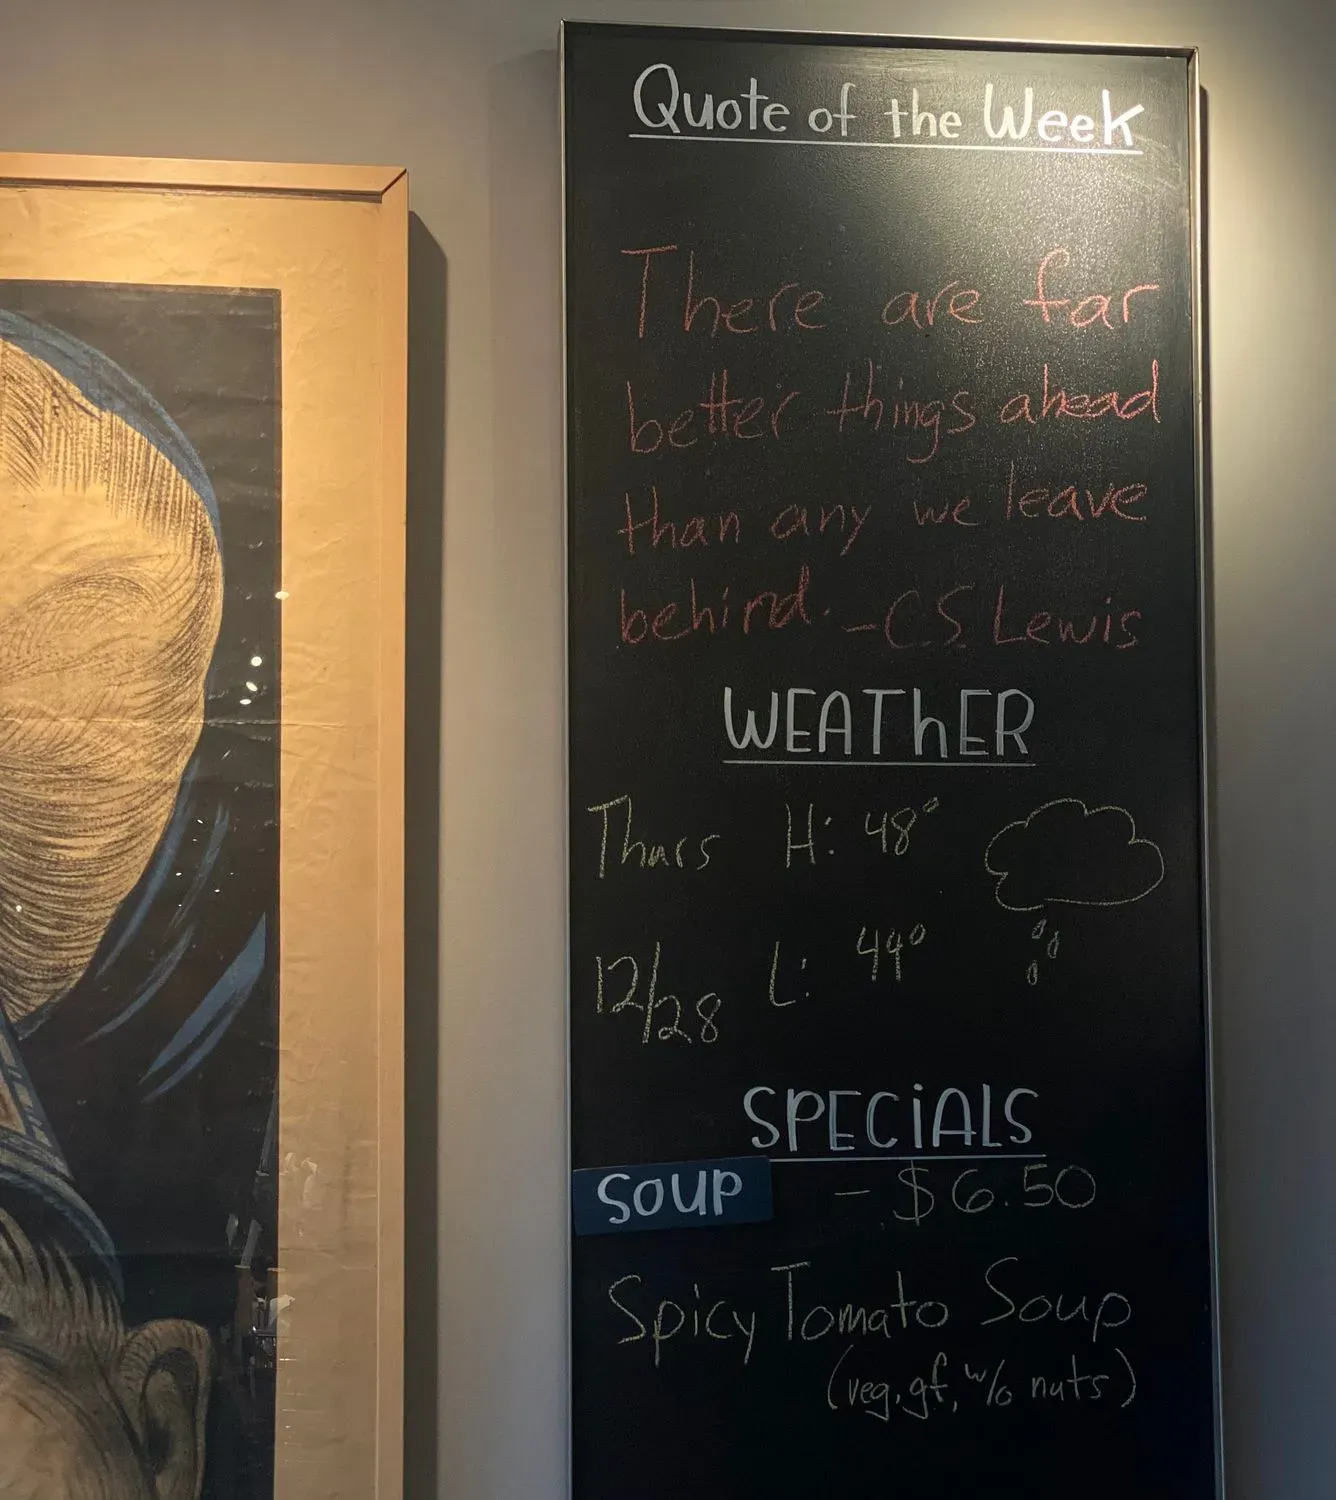 Quote of the Week
There are far
better things ahead
than any we leave
behind. -CS Lewis
WEAThER
Thurs H: 48°
12/28 L: 44°
SPECiALS
SOUP - $6.50
Spicy Tomato Soup
(veg, gf, w/o nuts)